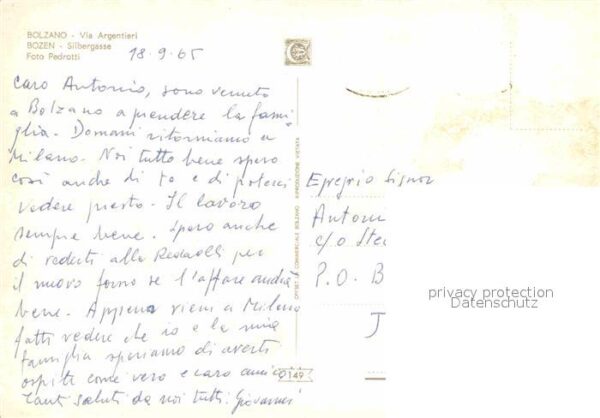 BOLZANO - Via Argentieri
BOZEN - Silbergasse
Foto Pedrotti
18.9.65
Caro Antonio, sono venuto
a Bolzano a prendere la fami-
glia. Domani ritorniamo a
Milano. Noi tutto bene spero
così anche di te e di poterci
vedere presto. Il lavoro
sempre bene. Spero anche
di vederti alla Redaelli per
il nuovo forno se l'affare andrà
bene. Appena vieni a Milano
fatti vedere che io e la mia
famiglia speriamo di averti
ospite come vero e caro amico
Tanti saluti da noi tutti. Giovanni
OFFSET COMMERCIALE BOLZANO RIPRODUZIONE VIETATA
149
Egregio Signor
Anton
c/o Ste
P.O. B
J
privacy protection
Datenschutz